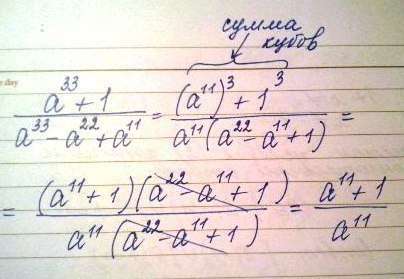 сумма
кубов
a³³ + 1 / a³³ - a²² + a¹¹ = (a¹¹)³ + 1³ / a¹¹(a²² - a¹¹ + 1) =
= (a¹¹ + 1)(a²² - a¹¹ + 1) / a¹¹(a²² - a¹¹ + 1) = a¹¹ + 1 / a¹¹